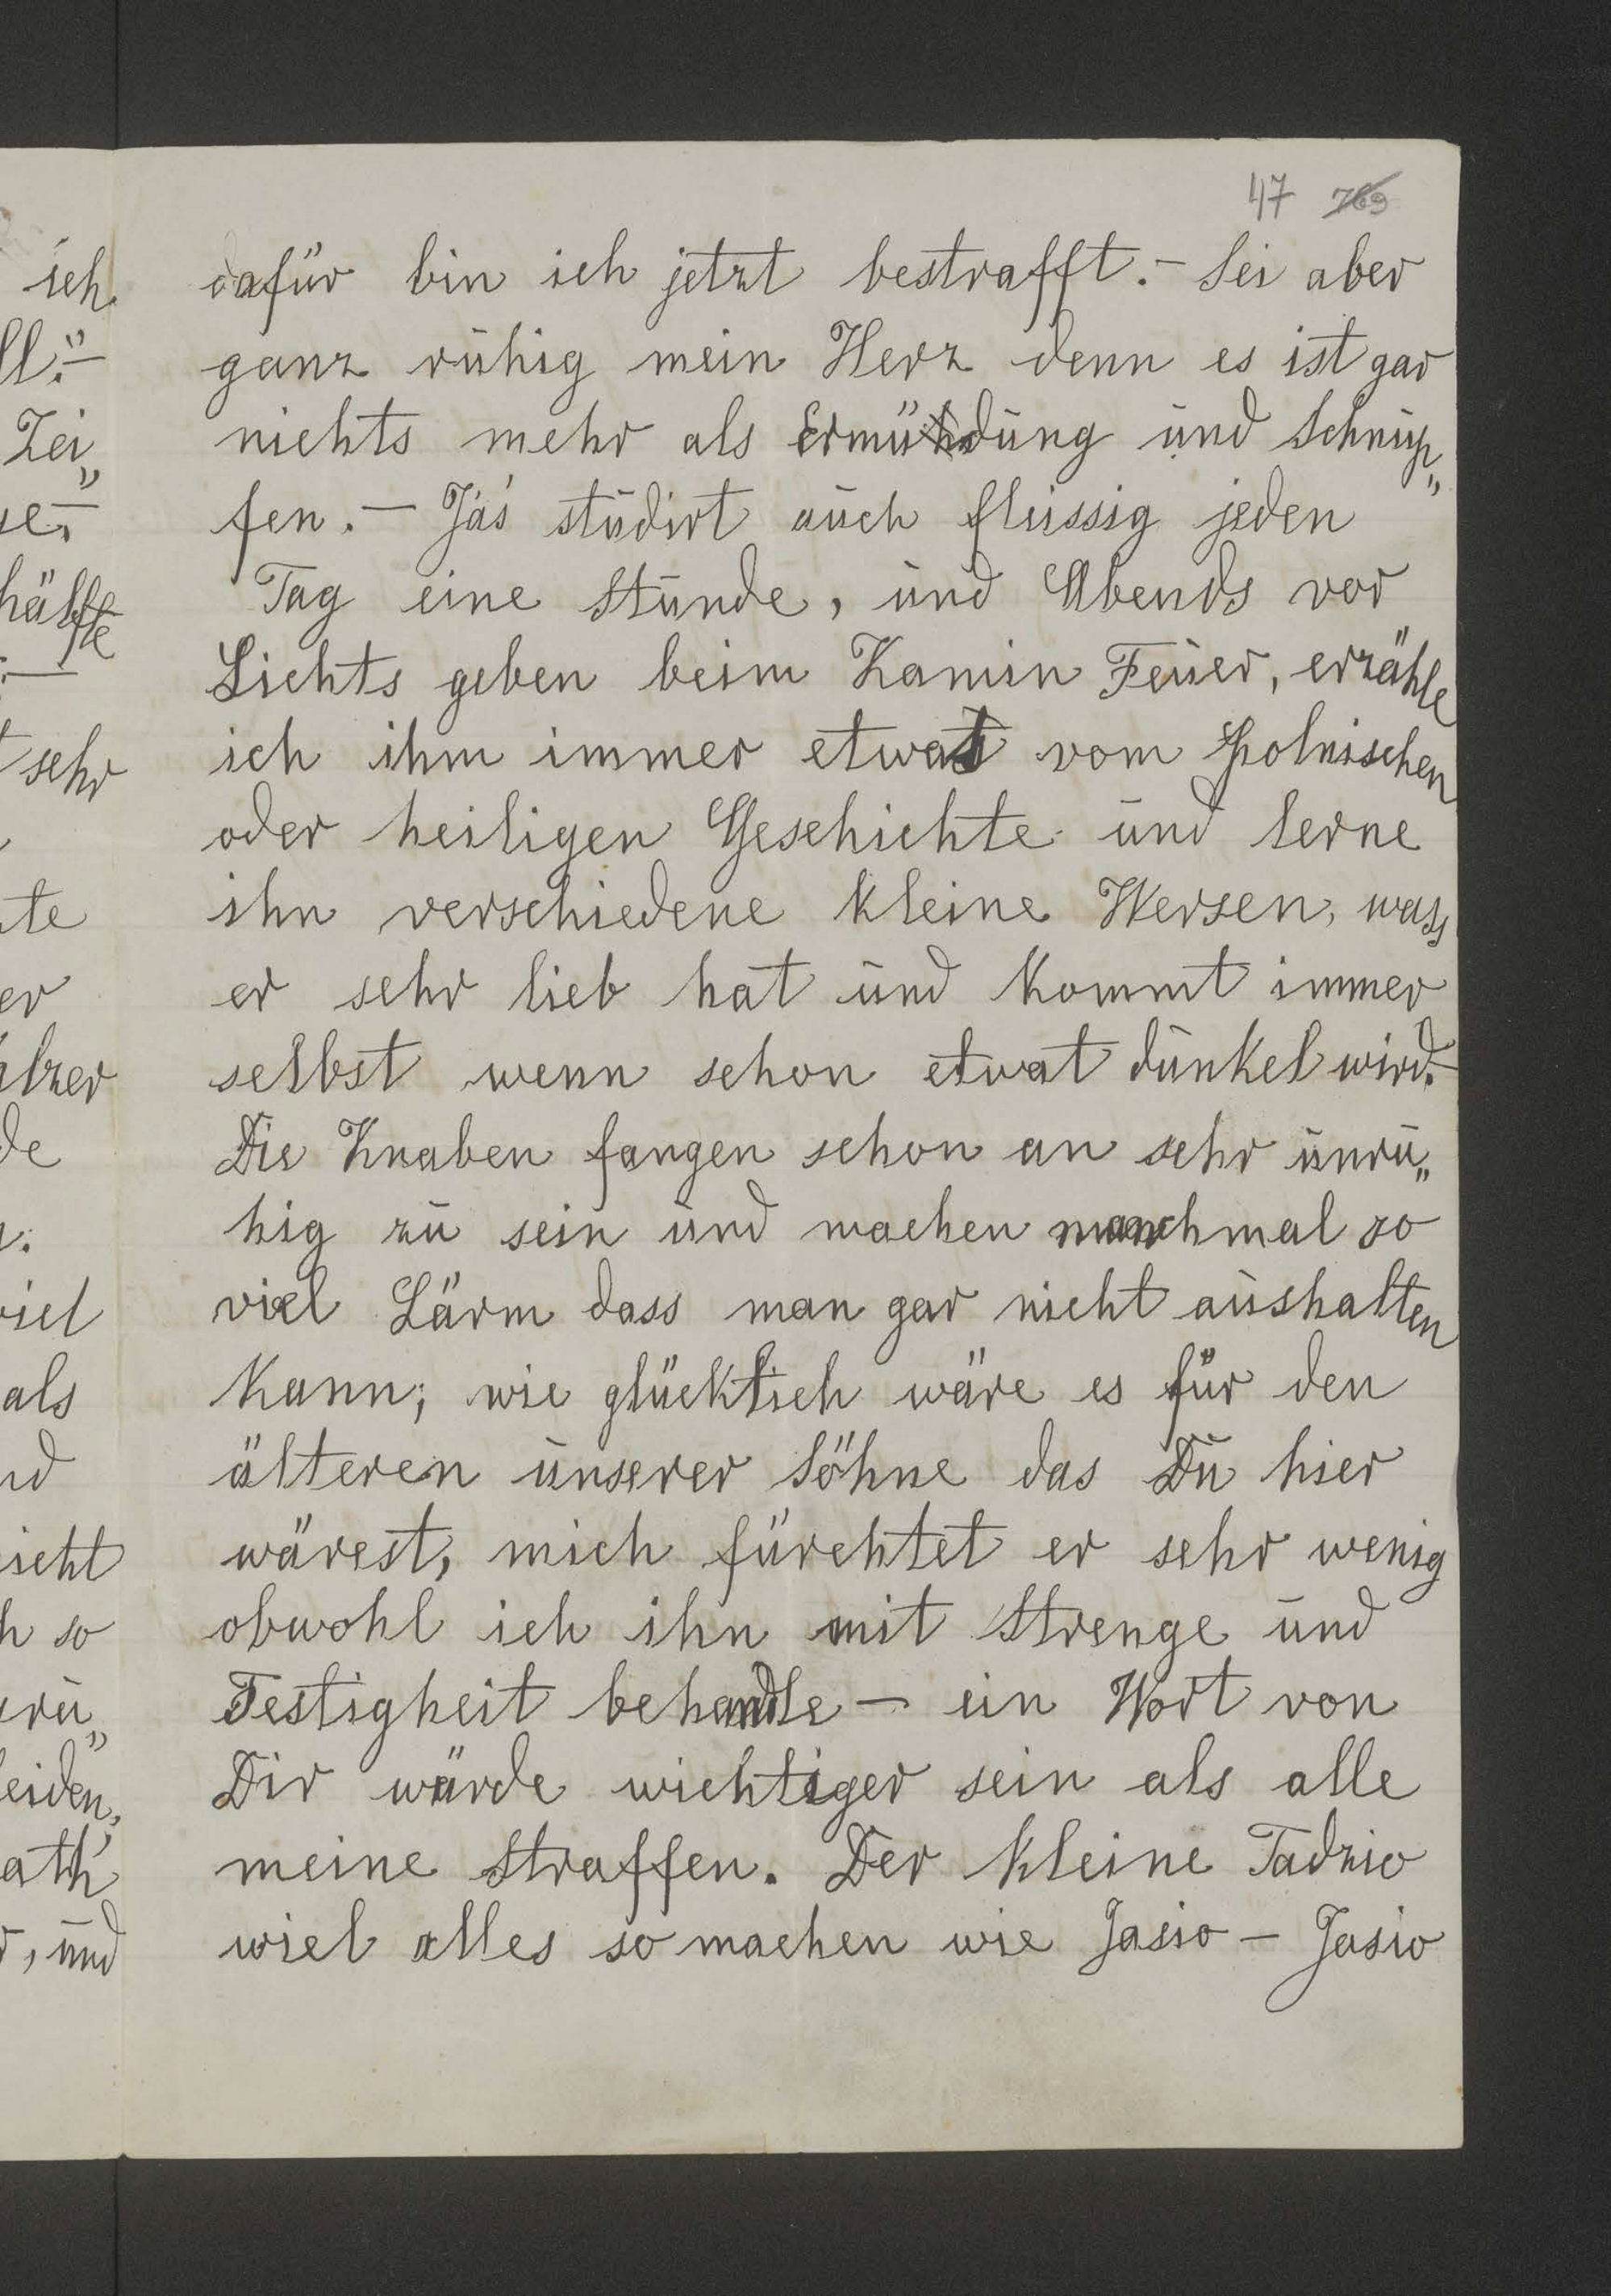 47 769
dafür bin ich jetzt bestrafft.- Sei aber
ganz ruhig mein Herz denn es ist gar
nichts mehr als Ermüdung und Schnup„
fen.- Jaś studirt auch flussig jeden
Tag eine Stunde, und Abends vor
Lichts geben beim Kamin Feuer, erzähle
ich ihm immer etwas vom polnischen
oder heiligen Geschichte und lerne
ihn verschiedene kleine Wersen, wass
er sehr lieb hat und kommt immer
selbst wenn schon etwat dunkel wird.-
Die Knaben fangen schon an sehr unru„
hig zu sein und machen manchmal so
viel Lärm dass man gar nicht aushalten
kann; wie glücklich wäre es für den
älteren unserer Söhne das Du hier
wärest, mich fürchtet er sehr wenig
obwohl ich ihn mit Strenge und
Festigheit behandle - ein Wort von
Dir würde wichtiger sein als alle
meine Straffen. Der kleine Tadzio
wiel alles so machen wie Jasio - Jasio
ich
ll."-
Zei„
se.-
hälfte
sehr
te
er
lzer
de
iel
als
nd
icht
h so
ru„
eiden,
ath
, und